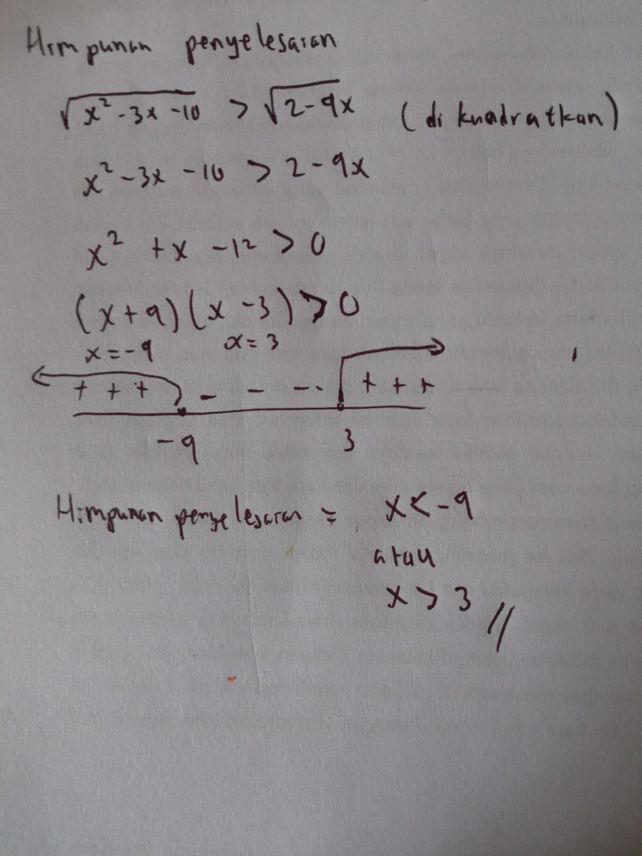 Himpunan penyelesaian
√x² - 3x - 10 > √2 - 9x (di kuadratkan)
x² - 3x - 10 > 2 - 9x
x² + x - 12 > 0
(x + 9) (x - 3) > 0
x = -9 x = 3
+ + + - - - - + + +
-9 3
Himpunan penyelesaian = x < -9
atau
x > 3 //